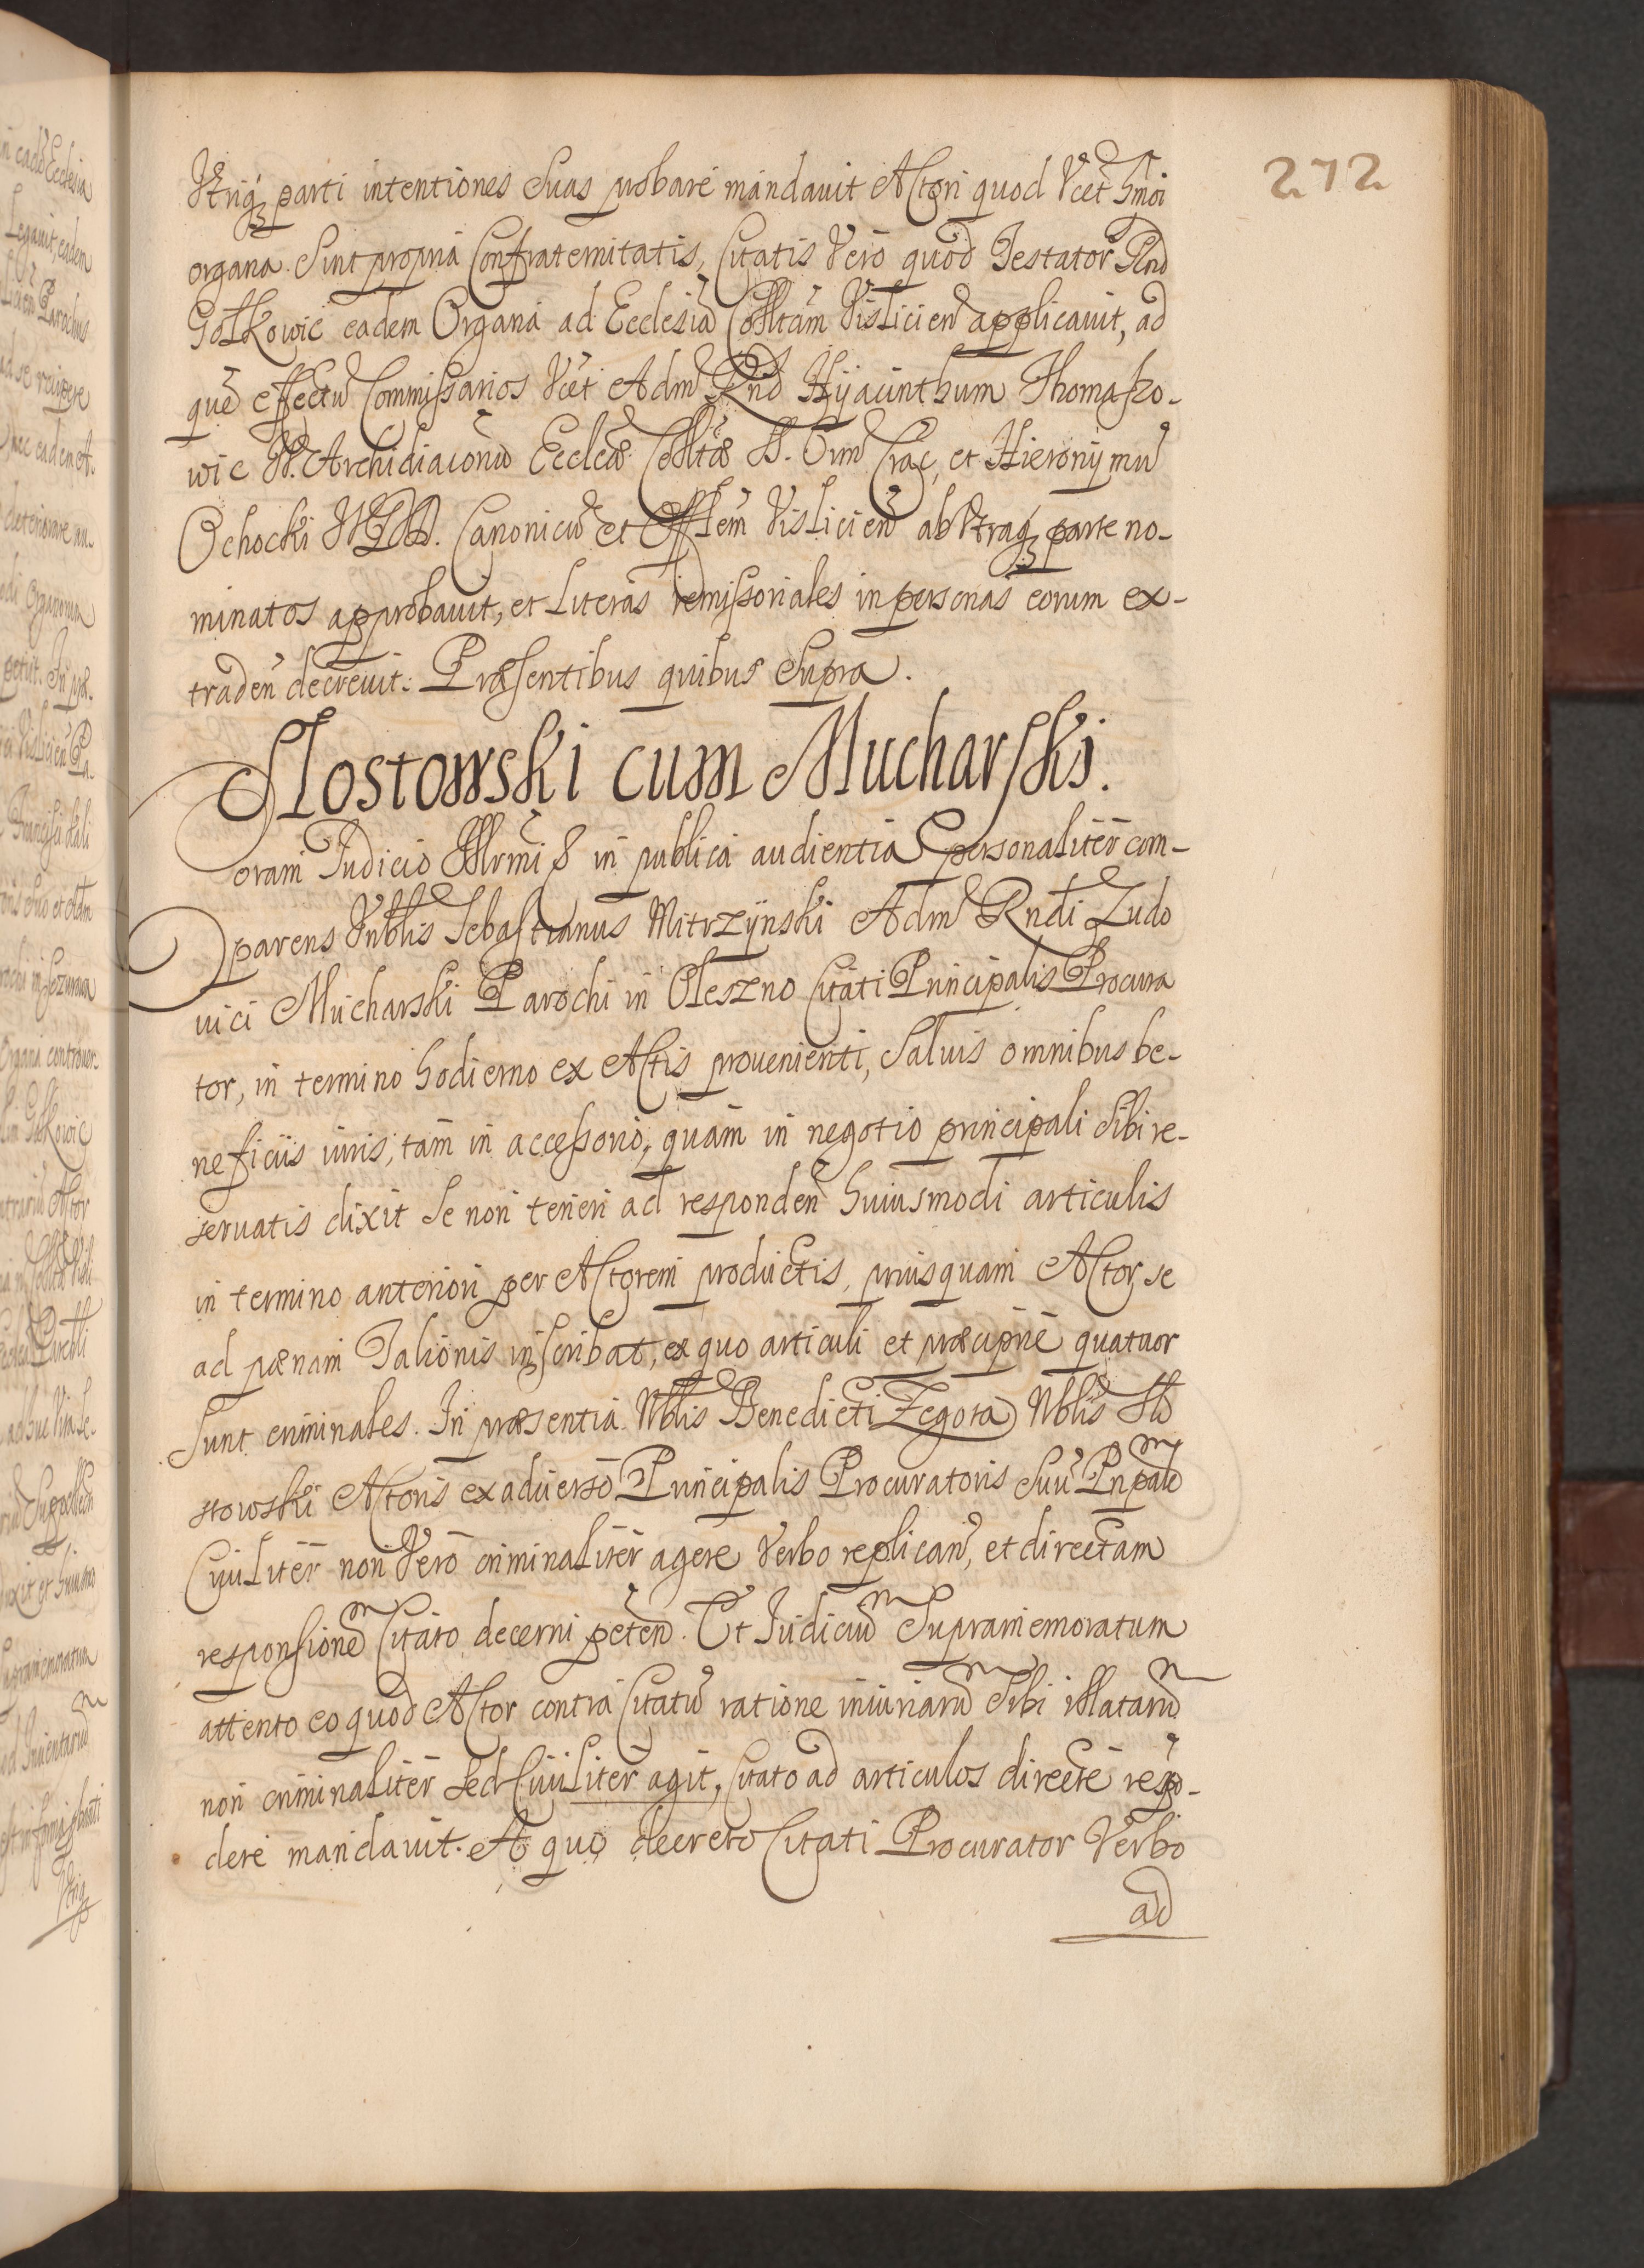 272
Vtriq₃ parti intentiones suas probare mandauit Actori quod Vcet hmoi
organa sint propria Confraternitatis, Citatis Vero quod Testator Rnd
Gołkowic eadem Organa ad Ecclesia Colltam Vislicien applicauit, ad
que effectu Commissarios Vcet Adm Rnd Hyacinthum Thomasko-
wic Archidiaconu Ecclae Colltae SS. Oım Crac, et Hieronymu
Ochocki Canonicu et Offlem Vislicien ab Vtraq₃ parte no-
minatos approbauit, et Literas remissoriales in personas eorum ex-
traden decreuit. Præsentibus quibus supra.
Slostowski cum Mucharski.
Coram Judicio Illrmi &c in publica audientia personaliter com-
parens Nblis Sebastianus Mitrzynski Adm Rndi Ludo
uici Mucharski Parochi in Oleszno Citati Principalis Procura
tor, in termino hodierno ex Actis prouenienti, saluis omnibus be-
neficiis iuris, tam in accessorio, quam in negotio principali sibi re-
seruatis dixit se non teneri ad responden huiusmodi articulis
in termino anteriori per Actorem productis, priusquam Actor se
ad pænam Talionis inscribat, ex quo articuli et præcipue quatuor
sunt criminales. In præsentia Nblis Benedicti Zegota Nblis Slo
stowski Actoris ex aduerso Principalis Procuratoris suu Pnpale
Ciuiliter non Vero criminaliter agere Verbo replican, et directam
responsione Citato decerni peten. Et Judiciu Supramemoratum
attento eo quod Actor contra Citatu ratione iniuriaru sibi illataru
non criminaliter sed Ciuiliter agit, Citato ad articulos directe respo-
dere mandauit. A quo decreto Citati Procurator Verbo
ad